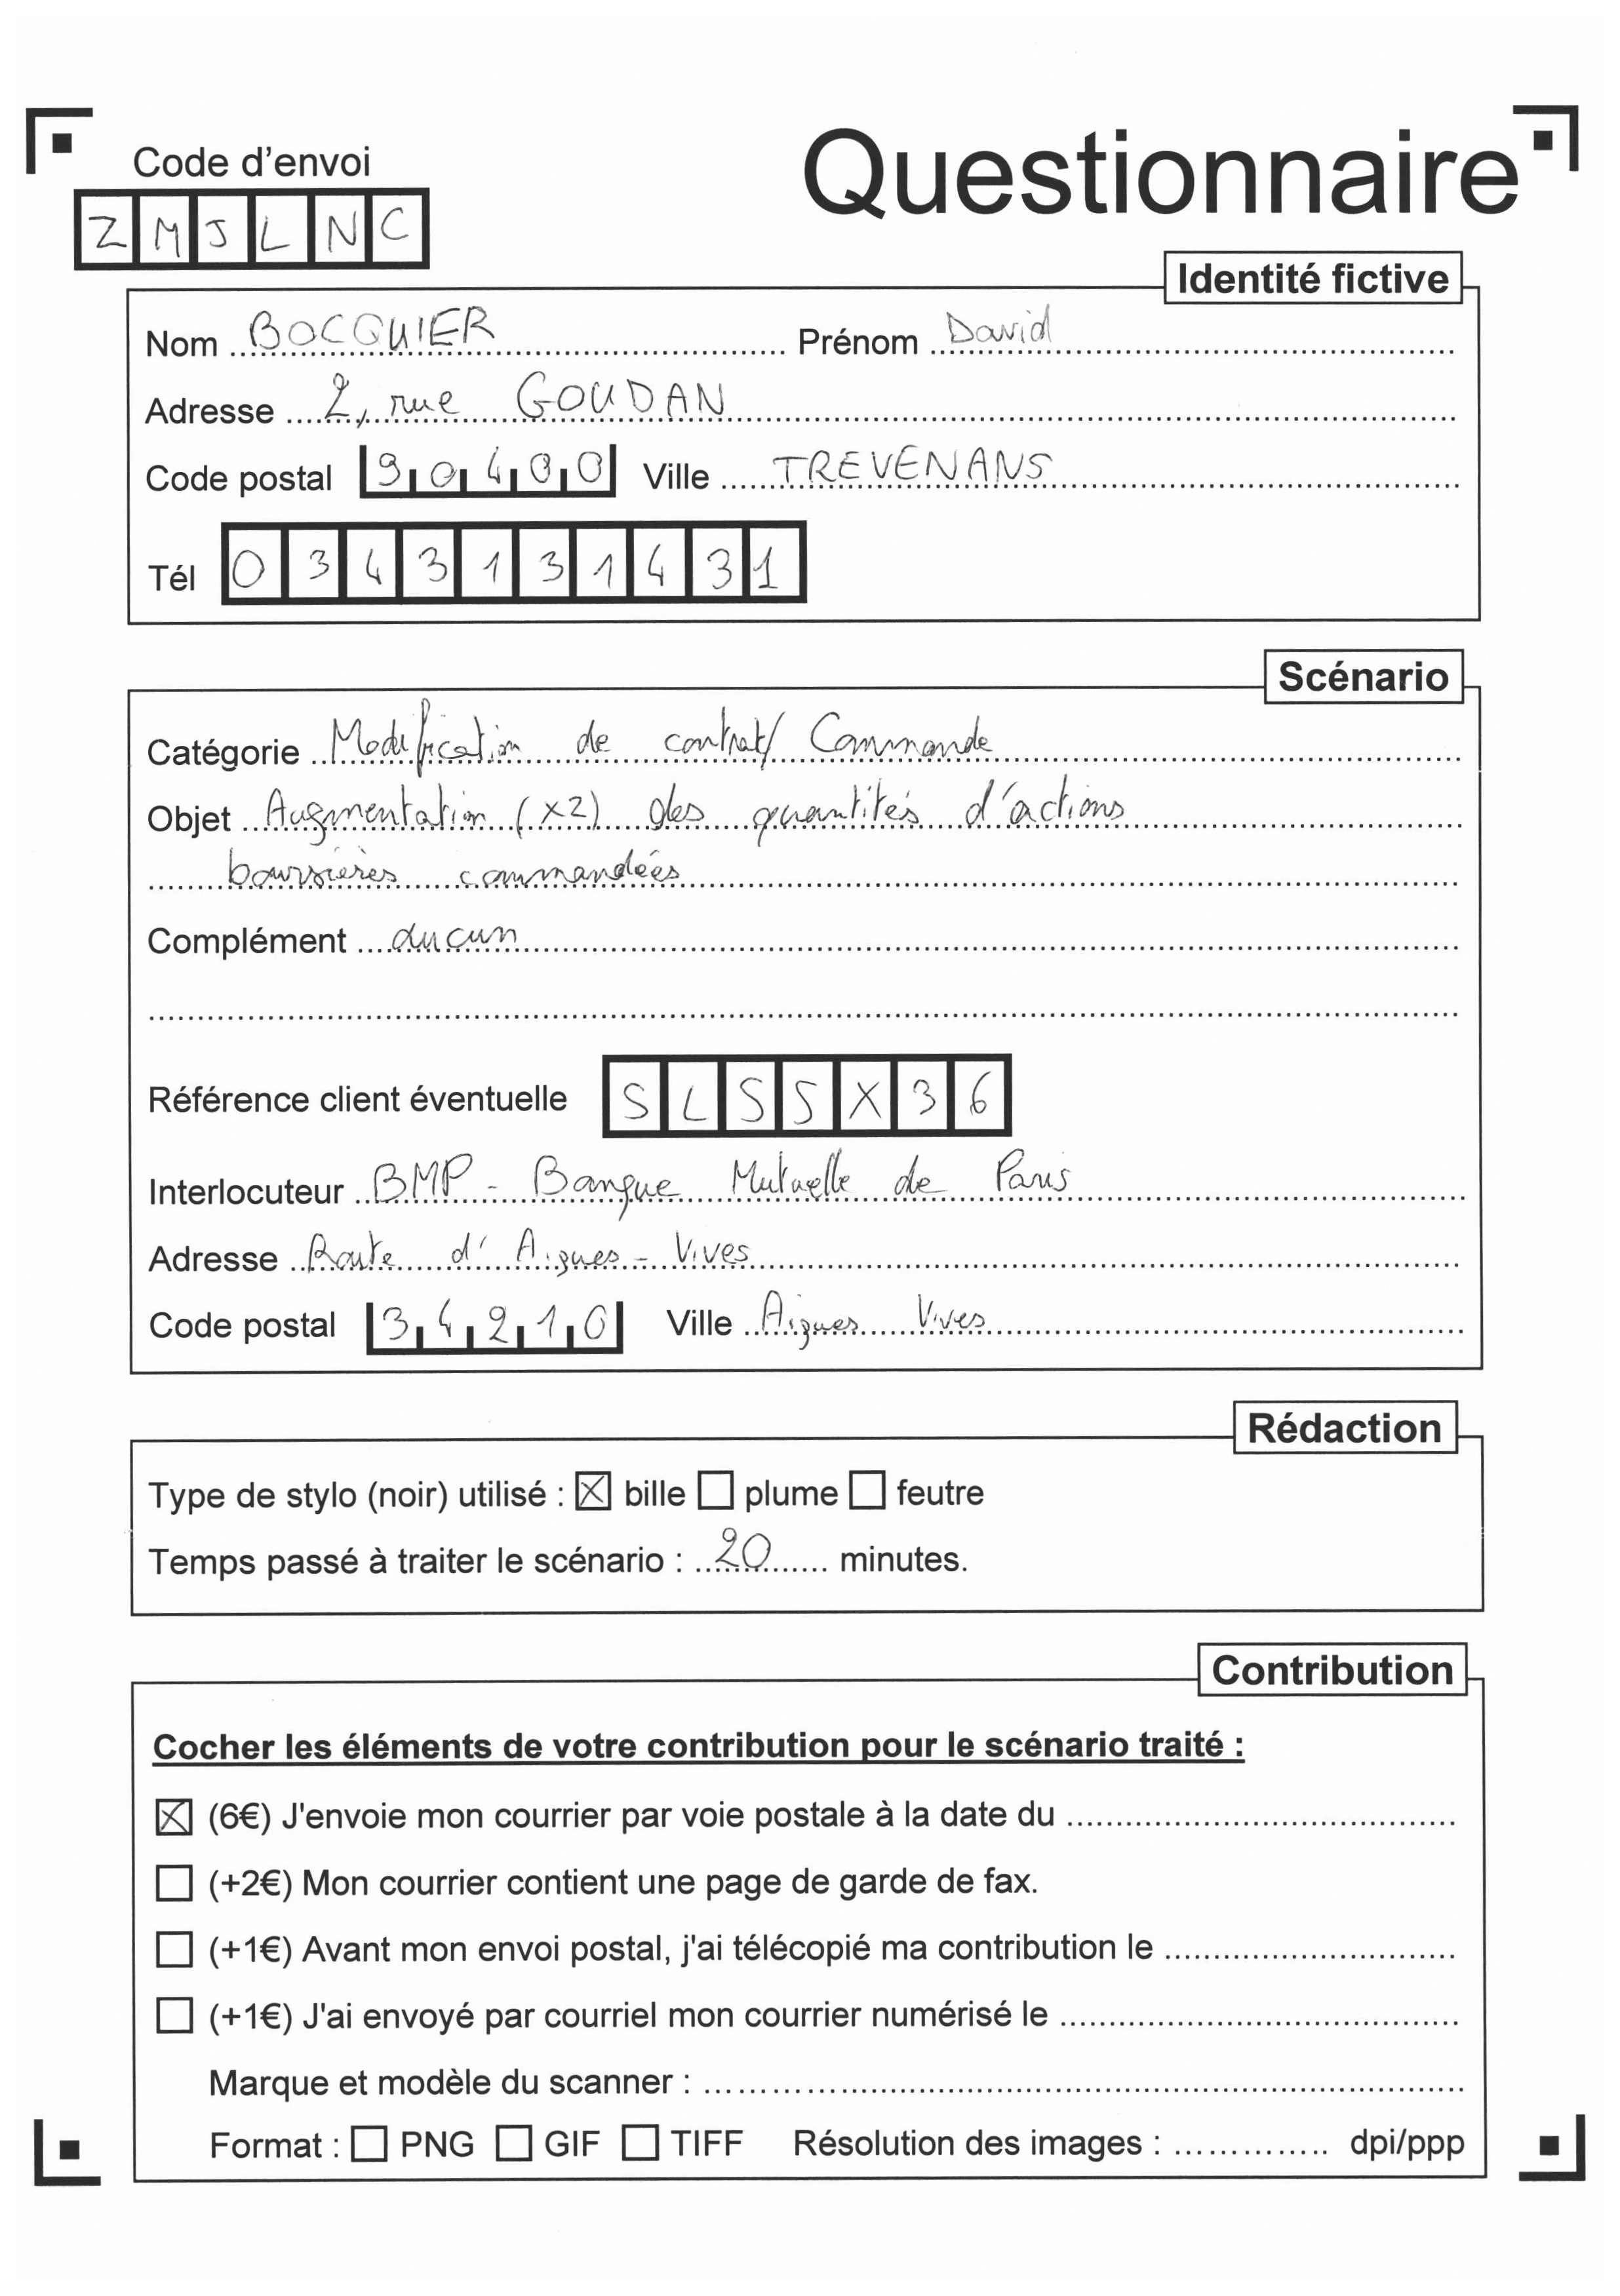 Code d'envoi
Questionnaire
ZMJLNC
Identité fictive
Nom BOCQUIER Prénom David
Adresse 2, rue GOUDAN
Code postal 90400 Ville TREVENANS
Tél 0343131431
Scénario
Catégorie Modification de contrat/ Commande
Objet Augmentation (x2) des quantités d'actions
boursières commandées
Complément aucun
Référence client éventuelle SLS5X36
Interlocuteur BMP - Banque Mutuelle de Paris
Adresse Route d'Aigues-Vives
Code postal 34210 Ville Aigues Vives
Rédaction
Type de stylo (noir) utilisé : ☒ bille ☐ plume ☐ feutre
Temps passé à traiter le scénario : 20 minutes.
Contribution
Cocher les éléments de votre contribution pour le scénario traité :
☒ (6€) J'envoie mon courrier par voie postale à la date du
☐ (+2€) Mon courrier contient une page de garde de fax.
☐ (+1€) Avant mon envoi postal, j'ai télécopié ma contribution le
☐ (+1€) J'ai envoyé par courriel mon courrier numérisé le
Marque et modèle du scanner :
Format : ☐ PNG ☐ GIF ☐ TIFF Résolution des images : dpi/ppp